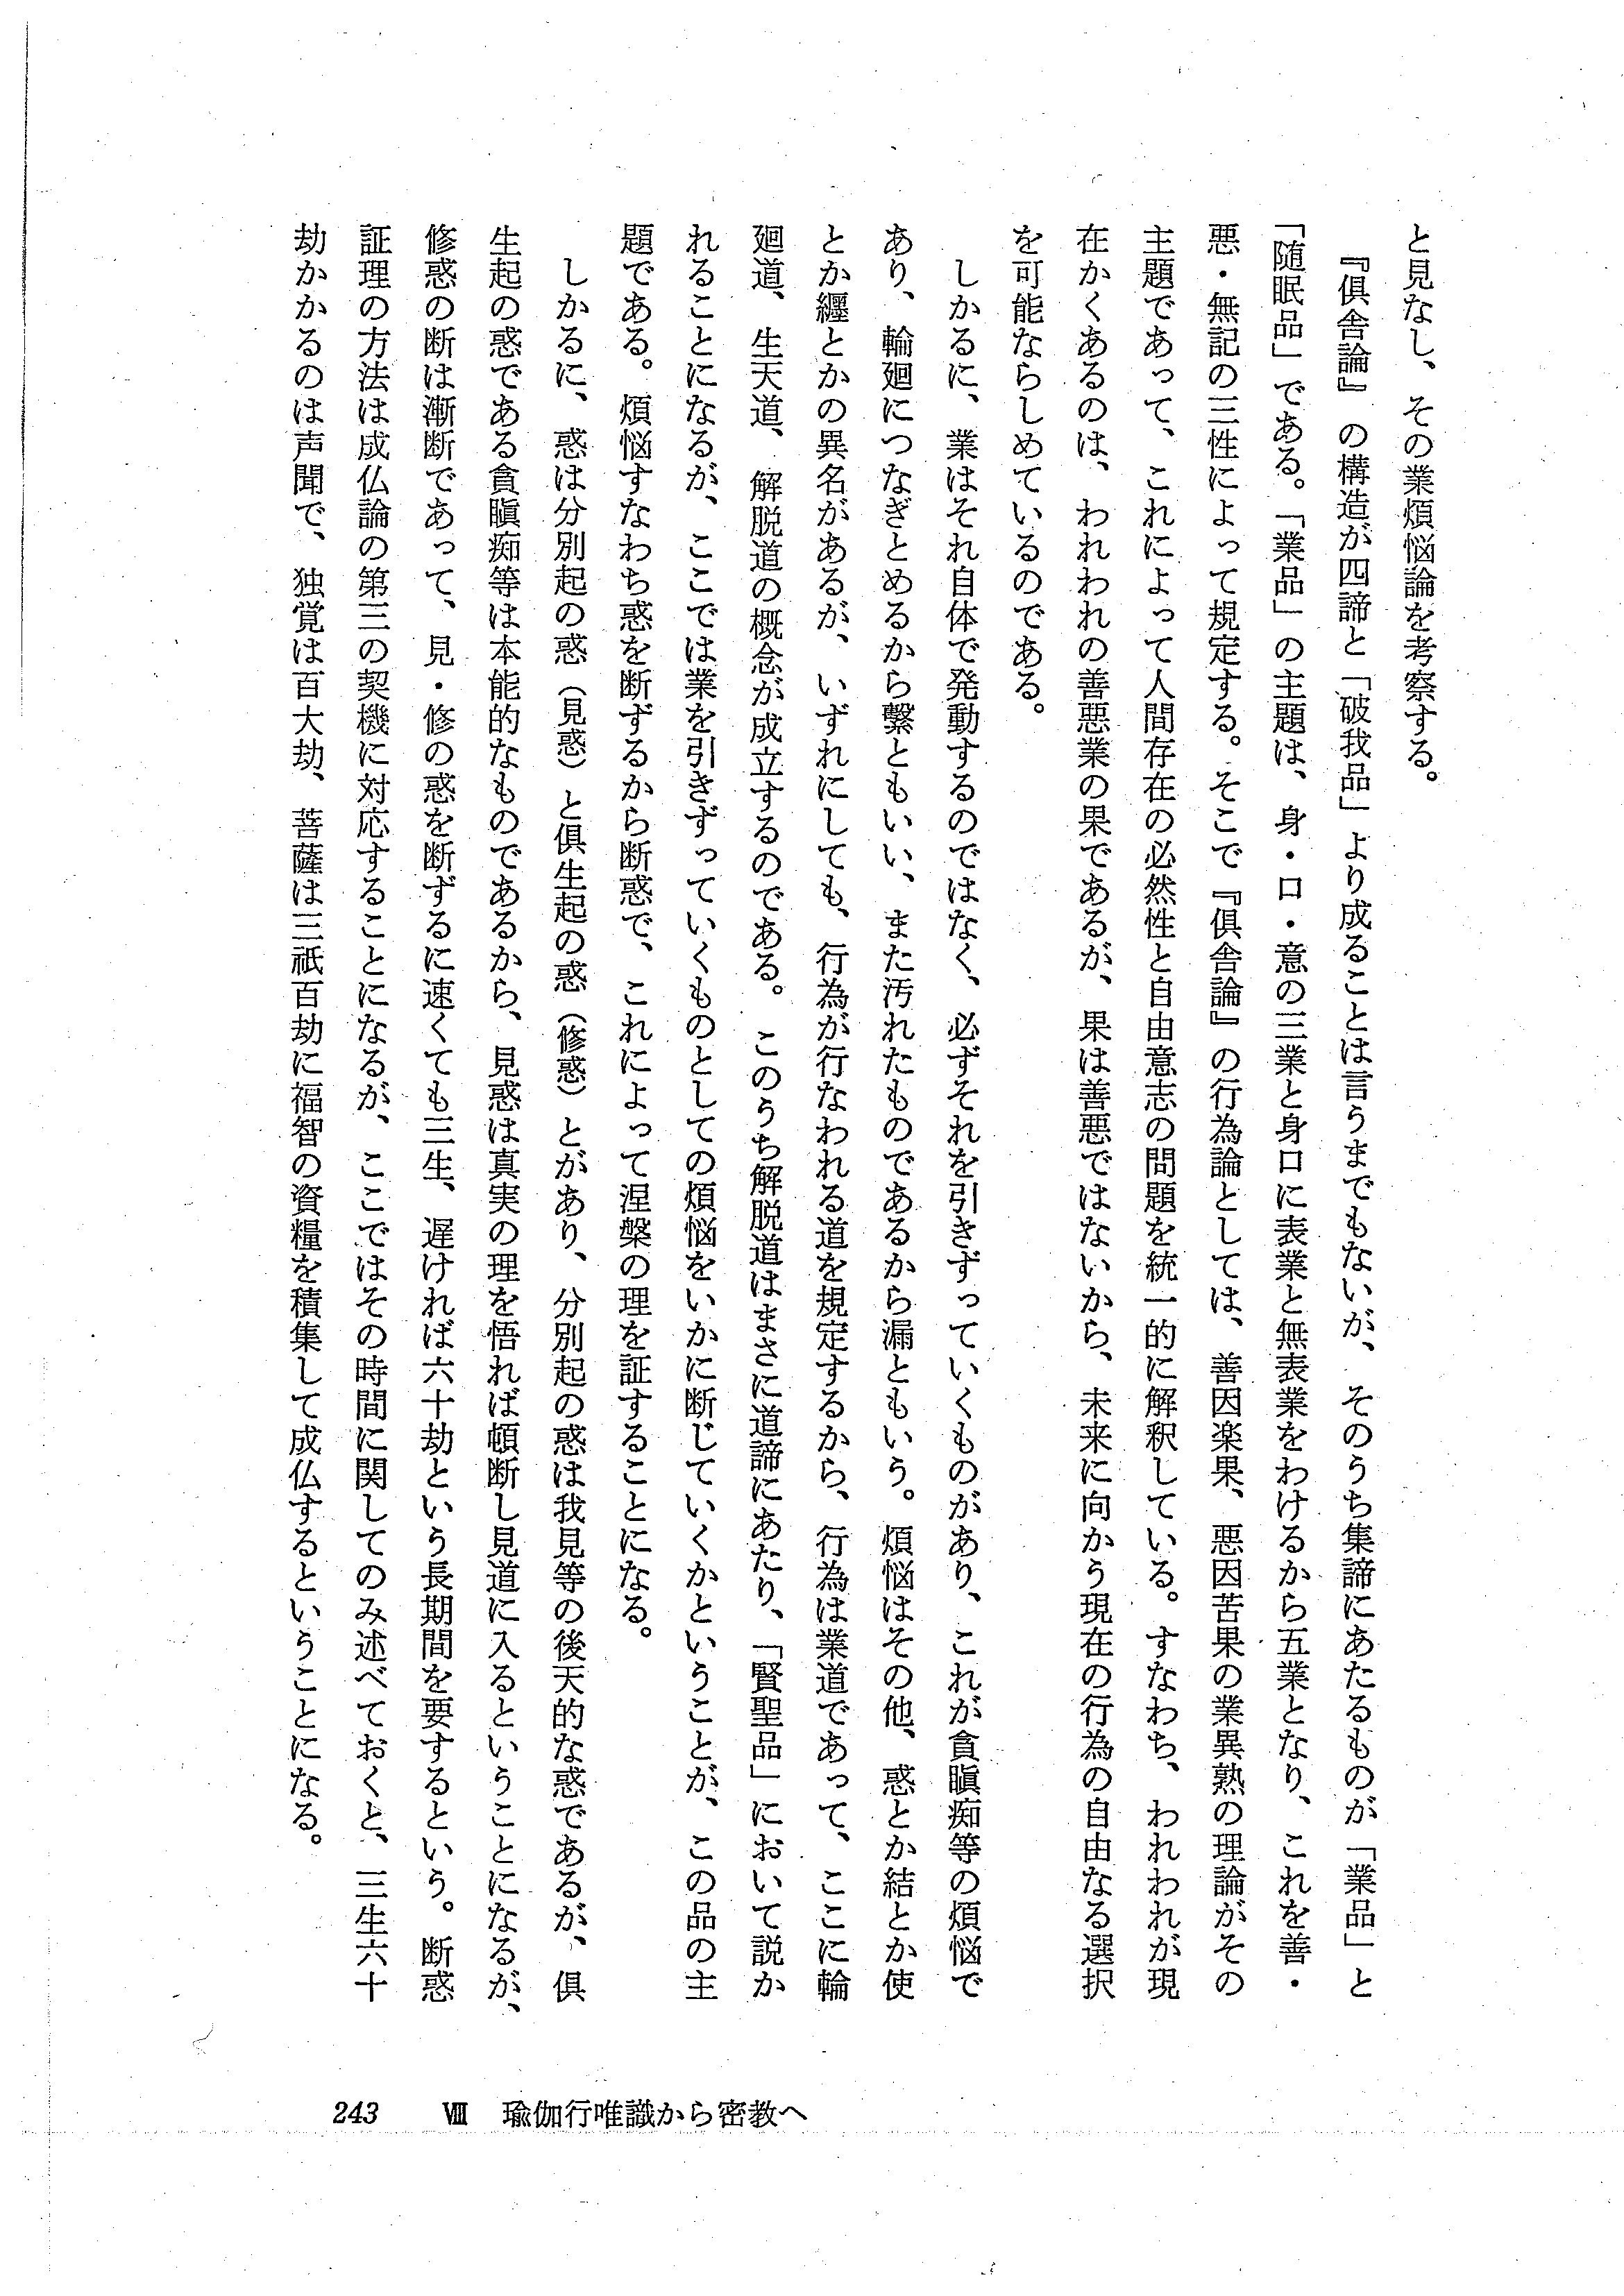 と見なし、その業煩悩論を考察する。
『倶舎論』の構造が四諦と「破我品」より成ることは言うまでもないが、そのうち集諦にあたるものが「業品」と
「随眠品」である。「業品」の主題は、身・口・意の三業と身口に表業と無表業をわけるから五業となり、これを善・
悪・無記の三性によって規定する。そこで『倶舎論』の行為論としては、善因楽果、悪因苦果の業異熟の理論がその
主題であって、これによって人間存在の必然性と自由意志の問題を統一的に解釈している。すなわち、われわれが現
在かくあるのは、われわれの善悪業の果であるが、果は善悪ではないから、未来に向かう現在の行為の自由なる選択
を可能ならしめているのである。
しかるに、業はそれ自体で発動するのではなく、必ずそれを引きずっていくものがあり、これが貪瞋痴等の煩悩で
あり、輪廻につなぎとめるから繋ともいい、また汚れたものであるから漏ともいう。煩悩はその他、惑とか結とか使
とか纒とかの異名があるが、いずれにしても、行為が行なわれる道を規定するから、行為は業道であって、ここに輪
廻道、生天道、解脱道の概念が成立するのである。このうち解脱道はまさに道諦にあたり、「賢聖品」において説か
れることになるが、ここでは業を引きずっていくものとしての煩悩をいかに断じていくかということが、この品の主
題である。煩悩すなわち惑を断ずるから断惑で、これによって涅槃の理を証することになる。
しかるに、惑は分別起の惑（見惑）と倶生起の惑（修惑）とがあり、分別起の惑は我見等の後天的な惑であるが、倶
生起の惑である貪瞋痴等は本能的なものであるから、見惑は真実の理を悟れば頓断し見道に入るということになるが、
修惑の断は漸断であって、見・修の惑を断ずるに速くても三生、遅ければ六十劫という長期間を要するという。断惑
証理の方法は成仏論の第三の契機に対応することになるが、ここではその時間に関してのみ述べておくと、三生六十
劫かかるのは声聞で、独覚は百大劫、菩薩は三祇百劫に福智の資糧を積集して成仏するということになる。
243 Ⅷ 瑜伽行唯識から密教へ